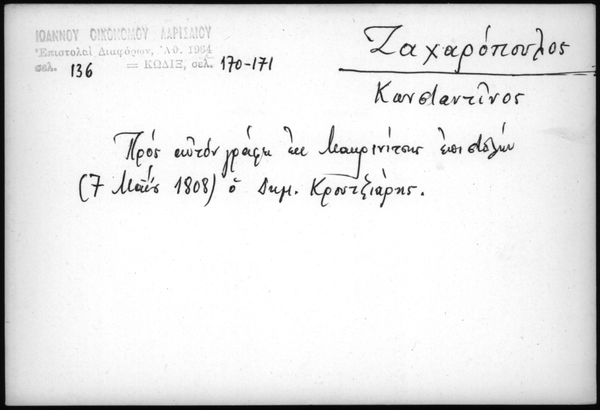 ΙΩΑΝΝΟΥ ΟΙΚΟΝΟΜΟΥ ΛΑΡΙΣΑΙΟΥ
Ἐπιστολαὶ Διαφόρων, Ἀθ. 1964
σελ. 136 = ΚΩΔΙΞ, σελ. 170-171
Ζαχαρόπουλος
Κωνσταντῖνος
Πρὸς αὐτὸν γράφει ἐκ Μακρινίτσης ἐπιστολὴν
(7 Μαΐου 1808) ὁ Δημ. Κρουτζιάρης.